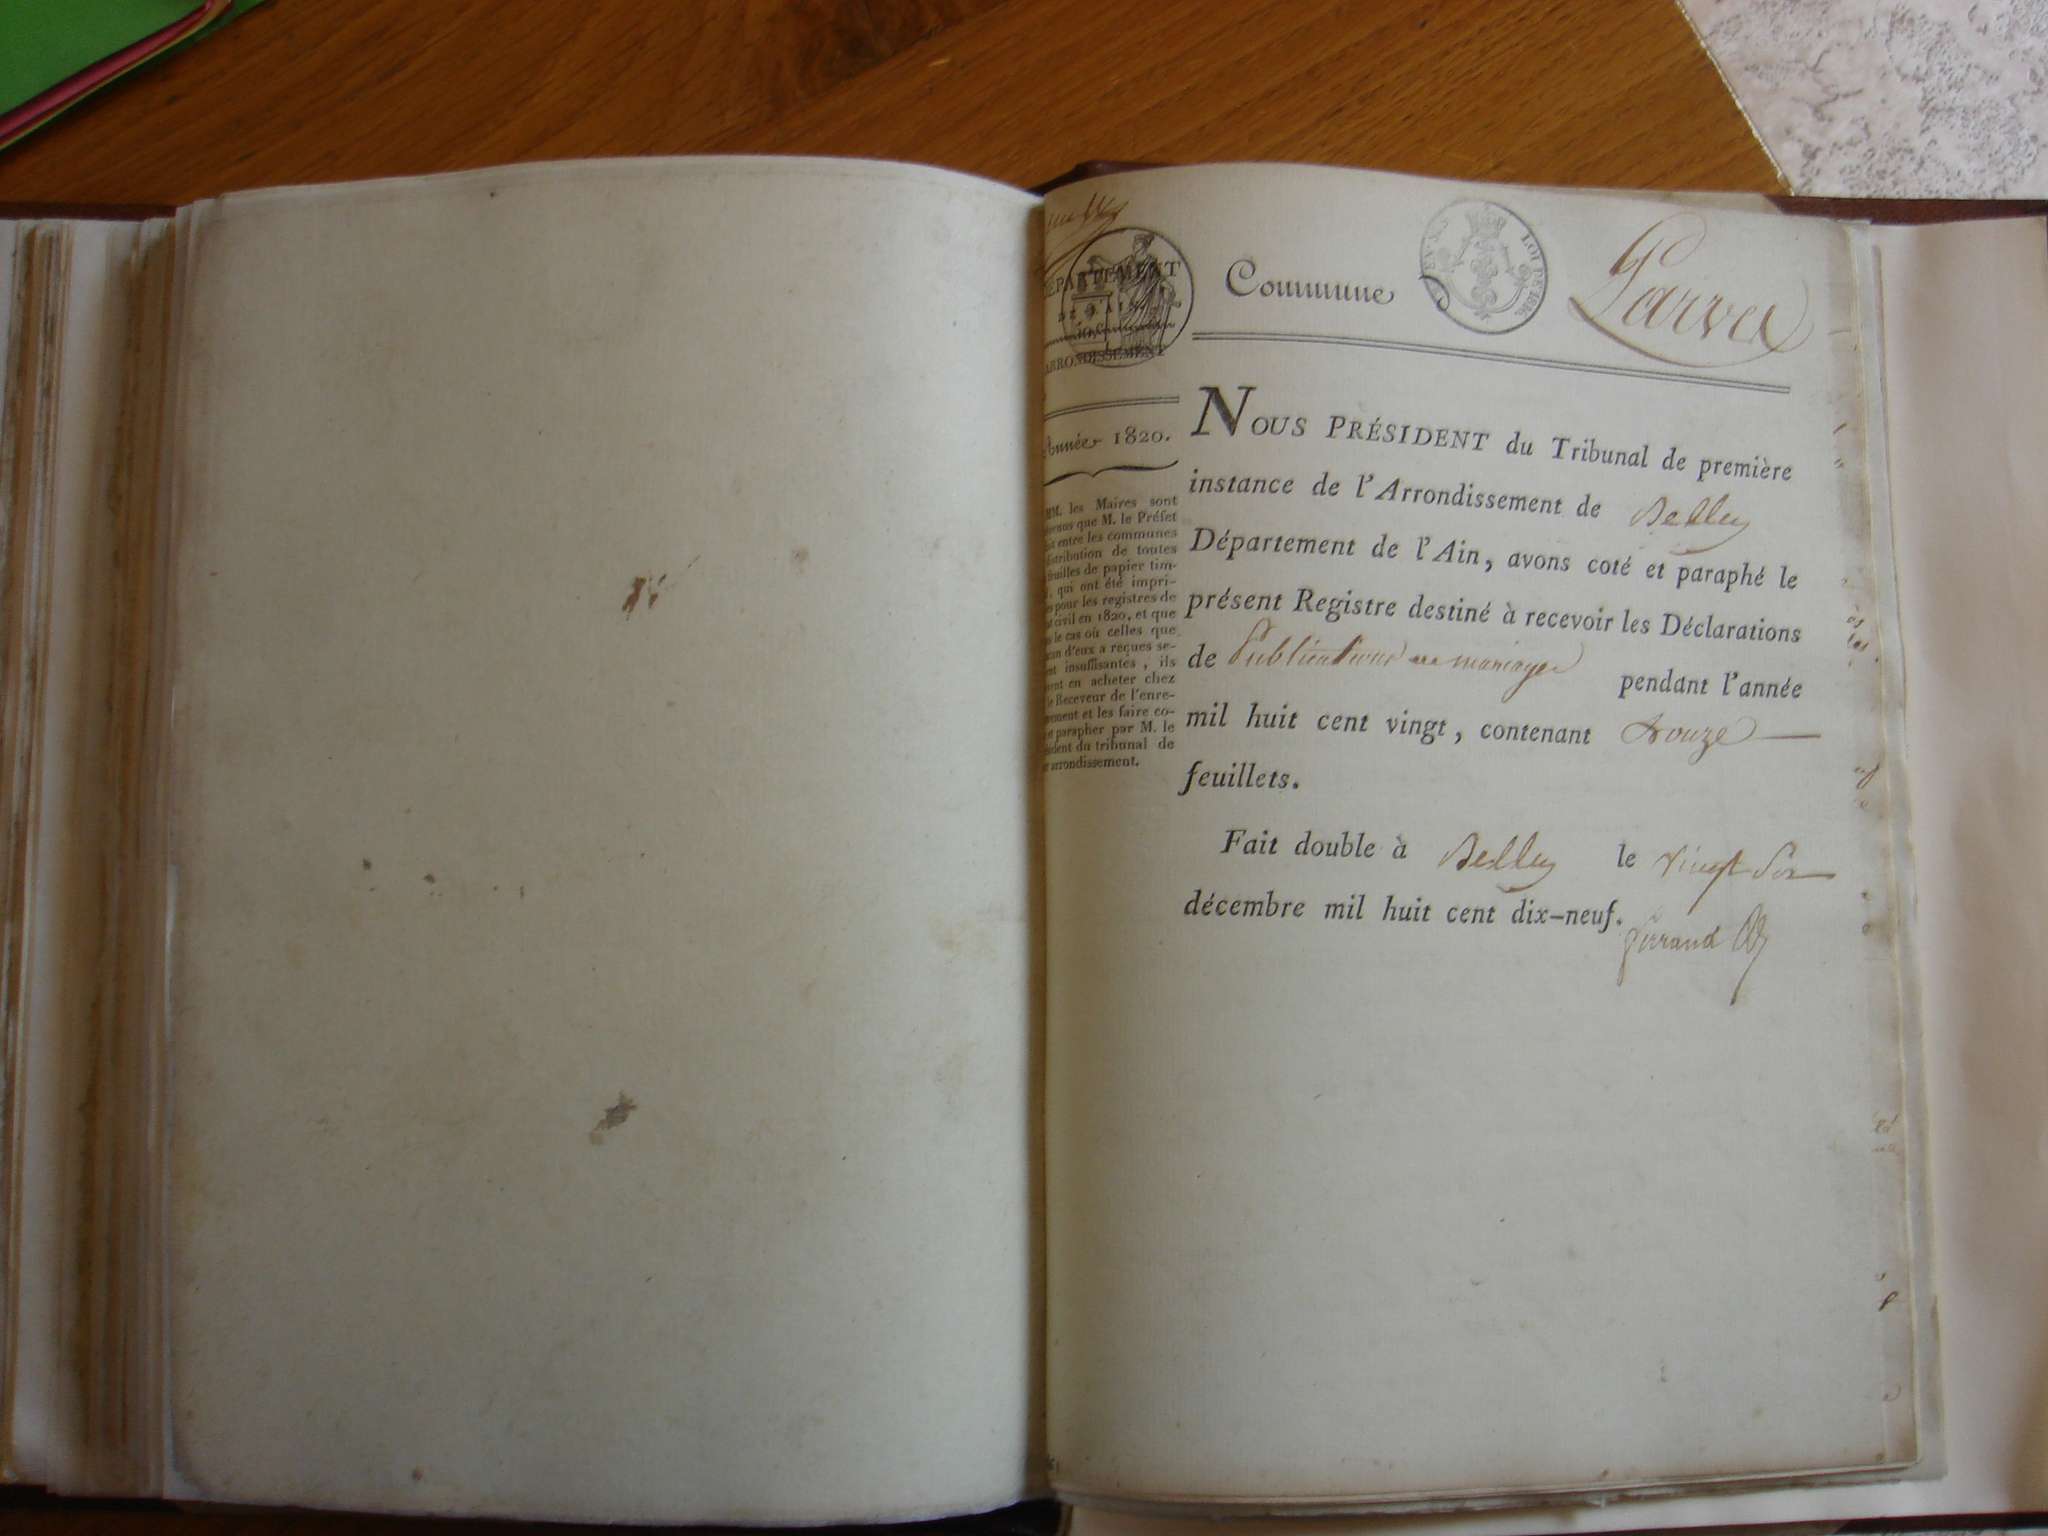 DÉPARTEMENT
DE L'AIN
ARRONDISSEMENT
Année 1820.
MM. les Maires sont
que M. le Préfet
entre les communes
distribution de toutes
feuilles de papier tim-
qui ont été impri-
pour les registres de
civil en 1820, et que
le cas où celles que
d'eux a reçues se-
insuffisantes, ils
en acheter chez
le Receveur de l'enre-
et les faire co-
parapher par M. le
du tribunal de
arrondissement.
Commune
LOI DE 1816
Parves
NOUS PRÉSIDENT du Tribunal de première
instance de l'Arrondissement de Belley
Département de l'Ain, avons coté et paraphé le
présent Registre destiné à recevoir les Déclarations
de Publications de mariage pendant l'année
mil huit cent vingt, contenant douze
feuillets.
Fait double à Belley le vingt six
décembre mil huit cent dix-neuf.